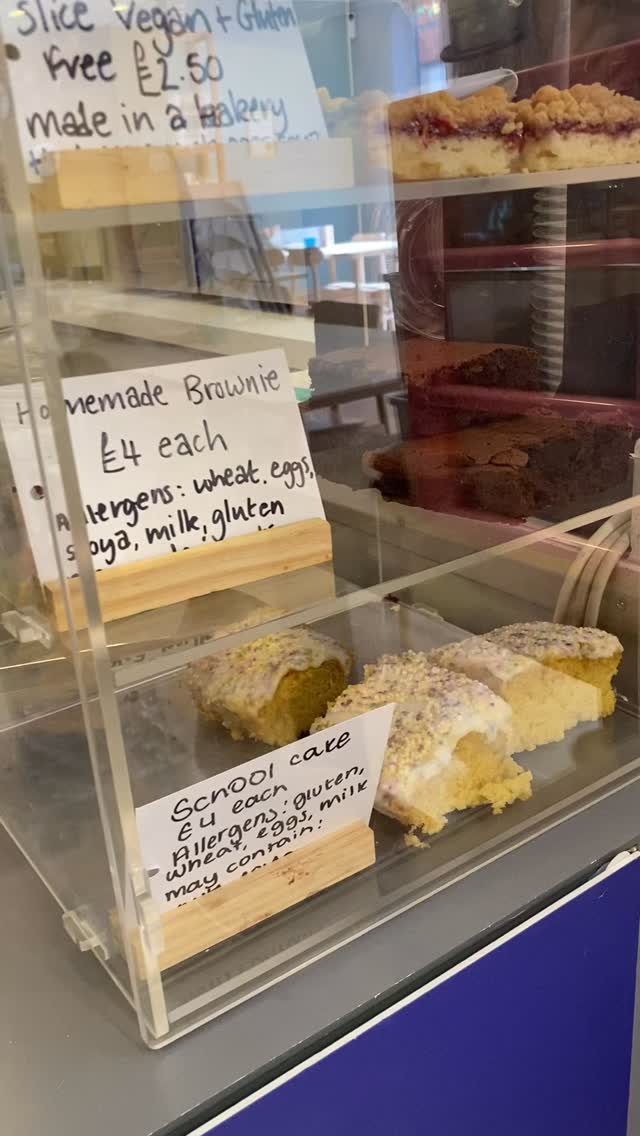 slice Vegan + Gluten
Free £2.50
made in a bakery
Homemade Brownie
£4 each
Allergens: wheat, eggs,
soya, milk, gluten
School cake
£4 each
Allergens: gluten,
wheat, eggs, milk
may contain: